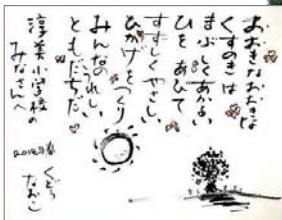 おおきなおおきな
くすのきは
まぶしくあかるい
ひをあびて
すずしくやさしい
ひかげをつくり
みんなのうれしい
ともだちだ
淳美小学校の
みなさんへ
2014年春
くどう
なおこ